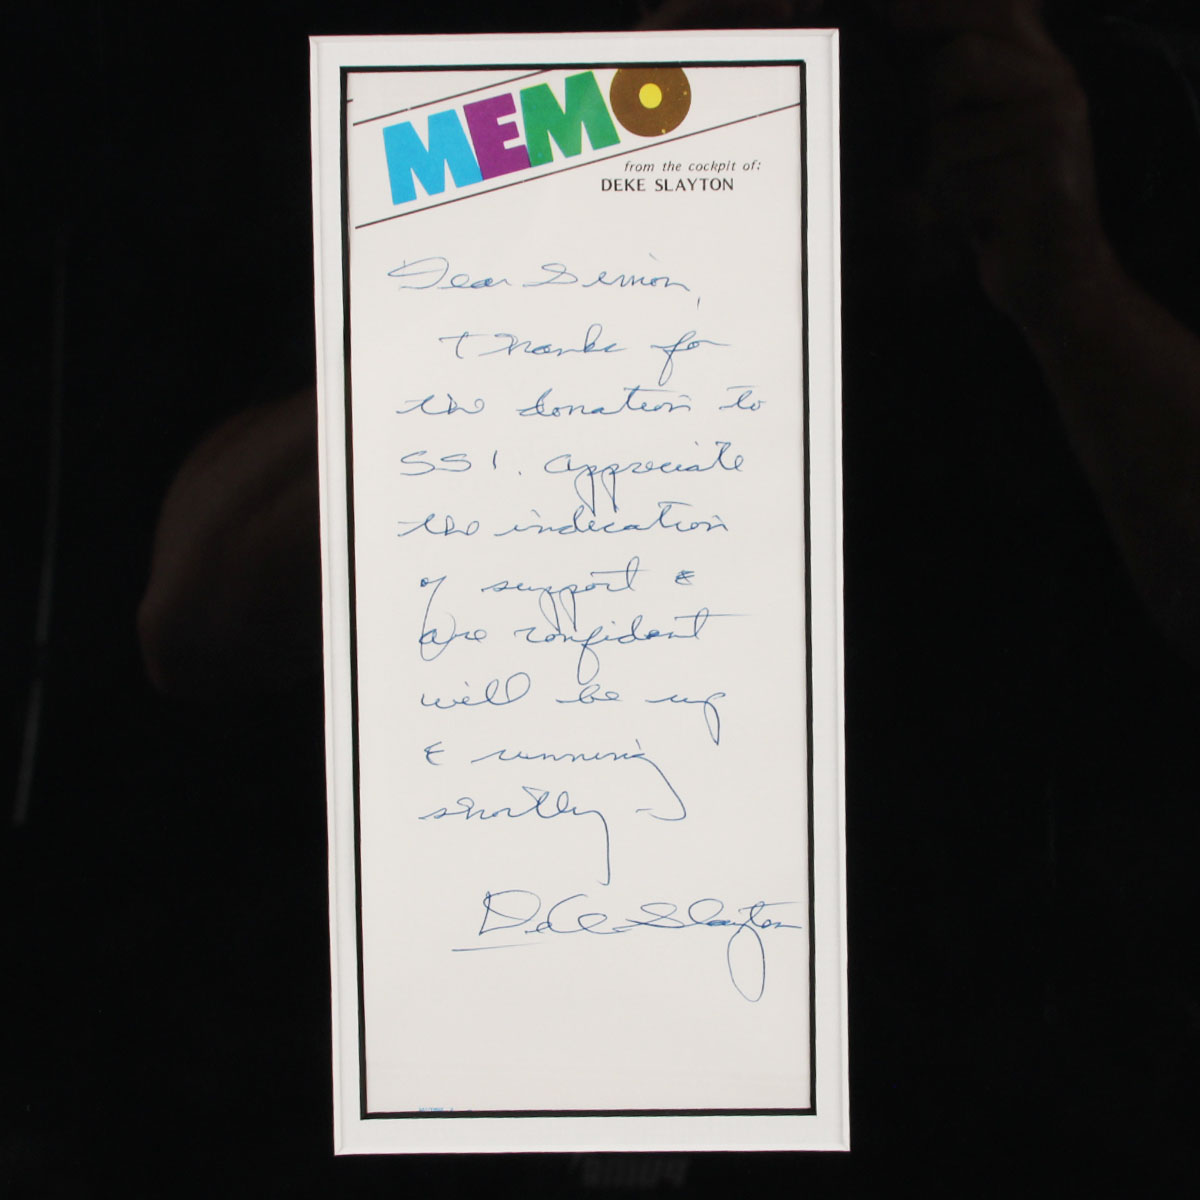 MEMO
from the cockpit of:
DEKE SLAYTON
Dear
Thanks for
the donation to
SSI. Appreciate
the indication
of support &
are confident
will be up
& running
shortly –
Deke Slayton